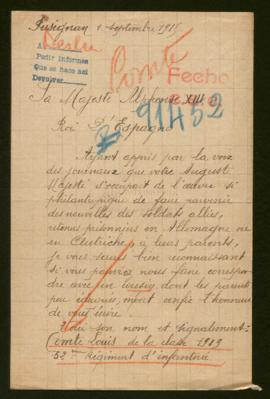 Pusignan 1 septembre 1915
Berlin
Pedir informes
Que se hace así
Devolver
Comte
Fecho
Sa Majesté Alphonse XIII
Roi D'Espagne
91452
Ayant appris par la voix
des journaux que votre Auguste
Majesté s'occupait de l'œuvre si
philantropique de faire parvenir
des nouvelles des soldats alliés,
retenus prisonniers en Allemagne
en Autriche à leurs parents,
je vous serais bien reconnaissant
si vous pouviez nous faire correspon-
dre avec un dont les parents
peu m'ont confié l'honneur
de vous écrire.
Voici son nom et signalement:
Comte Louis de la classe 1909
52me Régiment d'infanterie